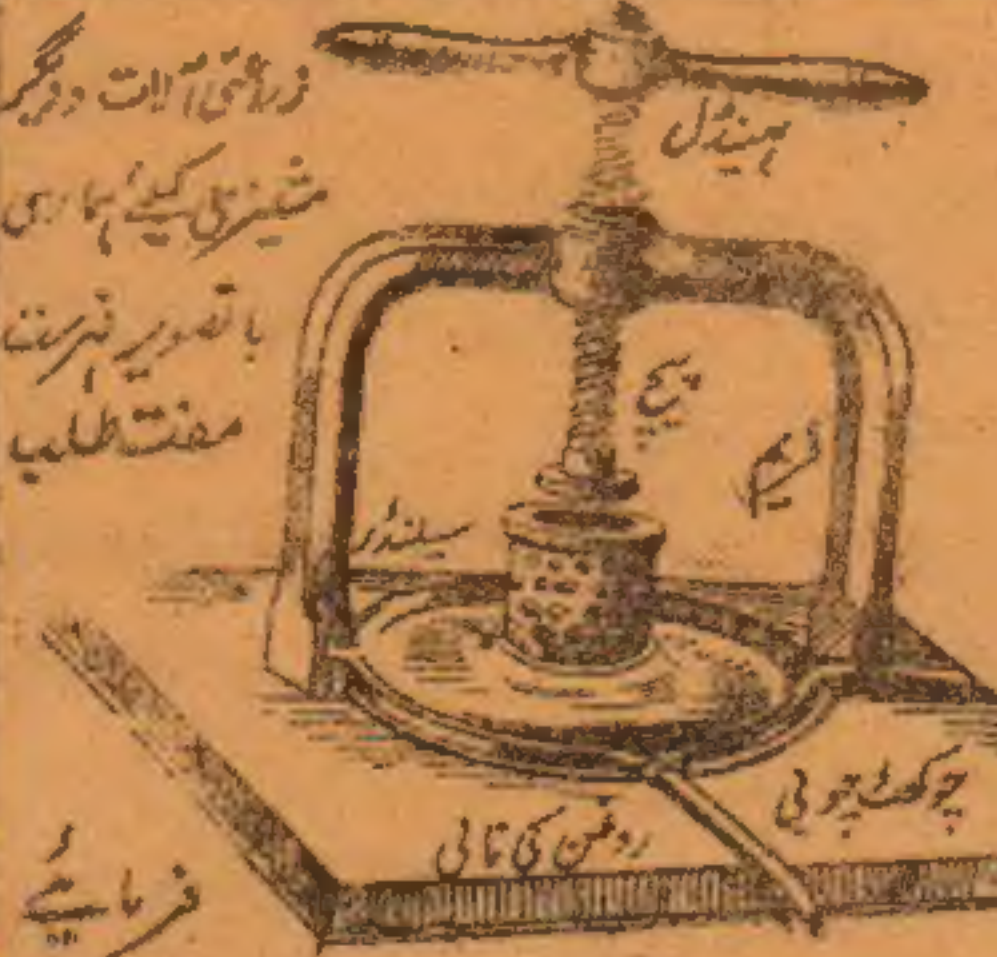 زراعتی آلات و دیگر
مشینری کیلئے ہماری
با تصویر فہرست
مفت طلب
فرمائیے
ہینڈل
پیچ
فریم
سیلنڈر
چوکھٹ چوبی
روغن کی نالی